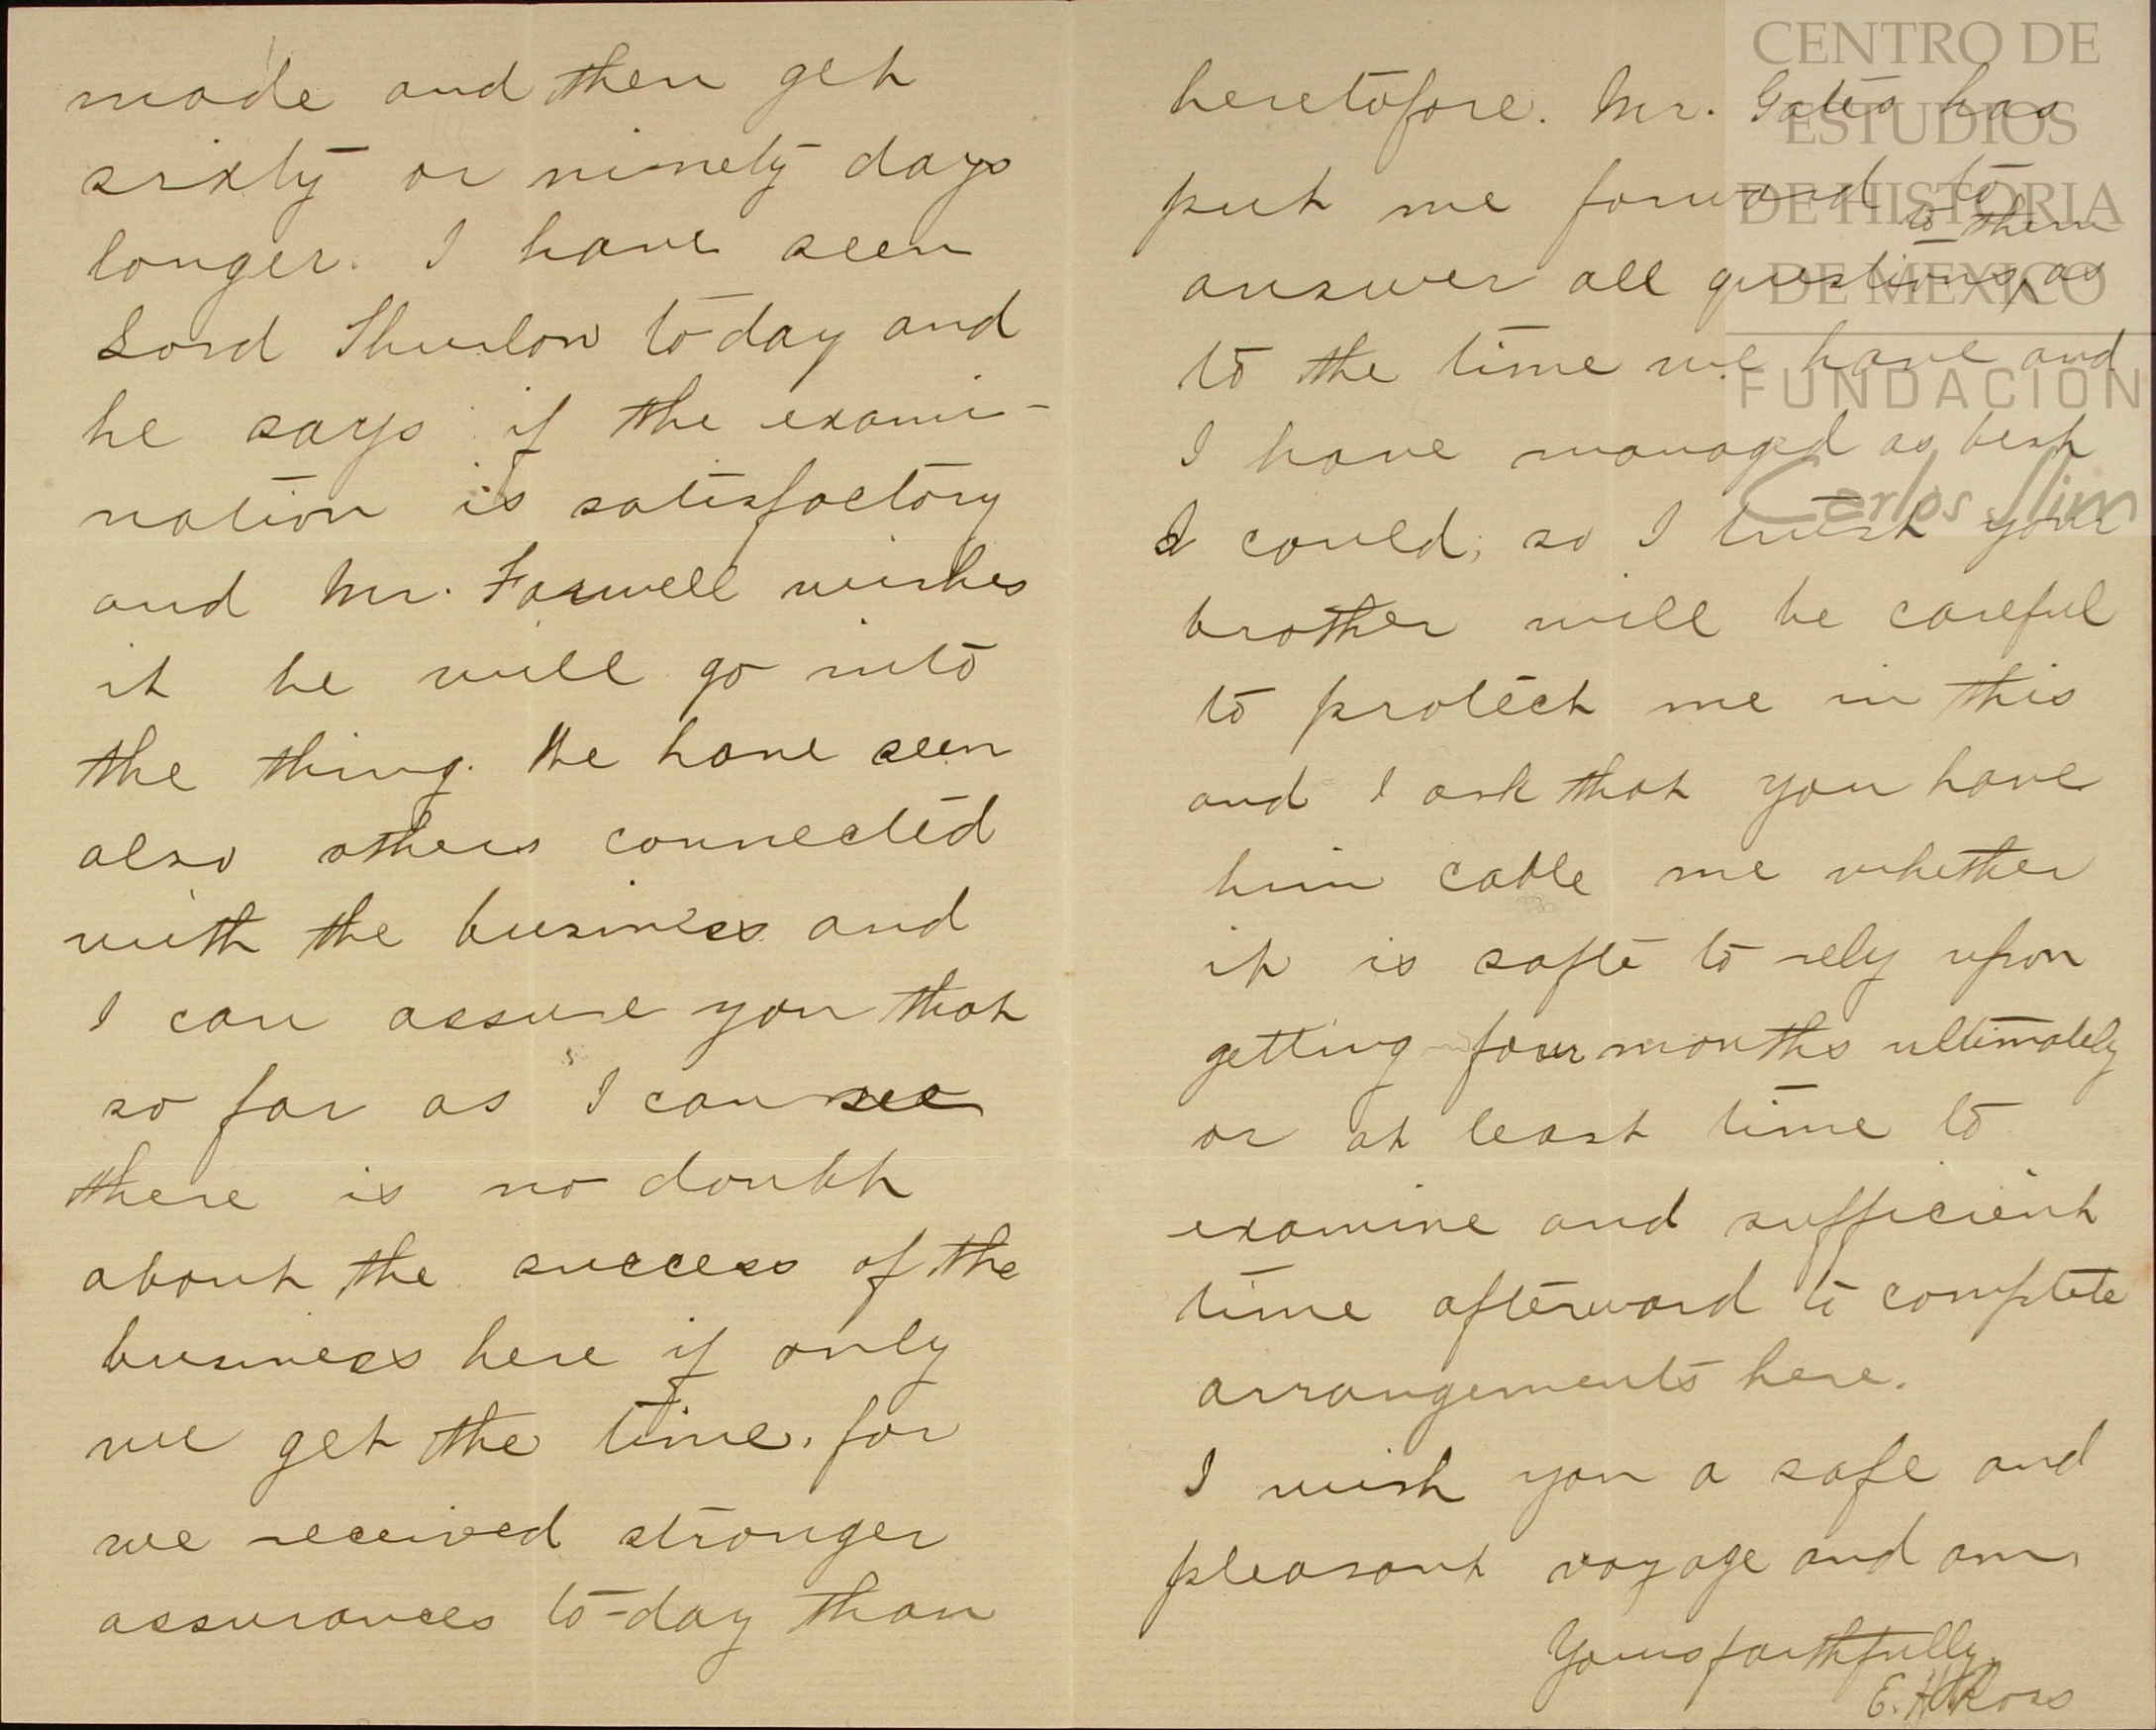 made and then get
sixty or ninety days
longer. I have seen
Lord Thurlow to day and
he says if the exami-
nation is satisfactory
and Mr. Farwell wishes
it he will go into
the thing. We have seen
also others connected
with the business and
I can assure you that
so far as I can see
there is no doubt
about the success of the
business here if only
we get the time, for
we received stronger
assurances to-day than
heretofore. Mr. Gates has
put me forward to
to them
answer all questions, as
to the time we have and
I have managed as best
I could; so I trust your
brother will be careful
to protect me in this
and I ask that you have
him cable me whether
it is safe to rely upon
getting four months ultimately
or at least time to
examine and sufficient
time afterward to complete
arrangements here.
I wish you a safe and
pleasant voyage and am
Yours faithfully,
E. H. Ross
CENTRO DE
ESTUDIOS
DE HISTORIA
DE MEXICO
FUNDACION
Carlos Slim